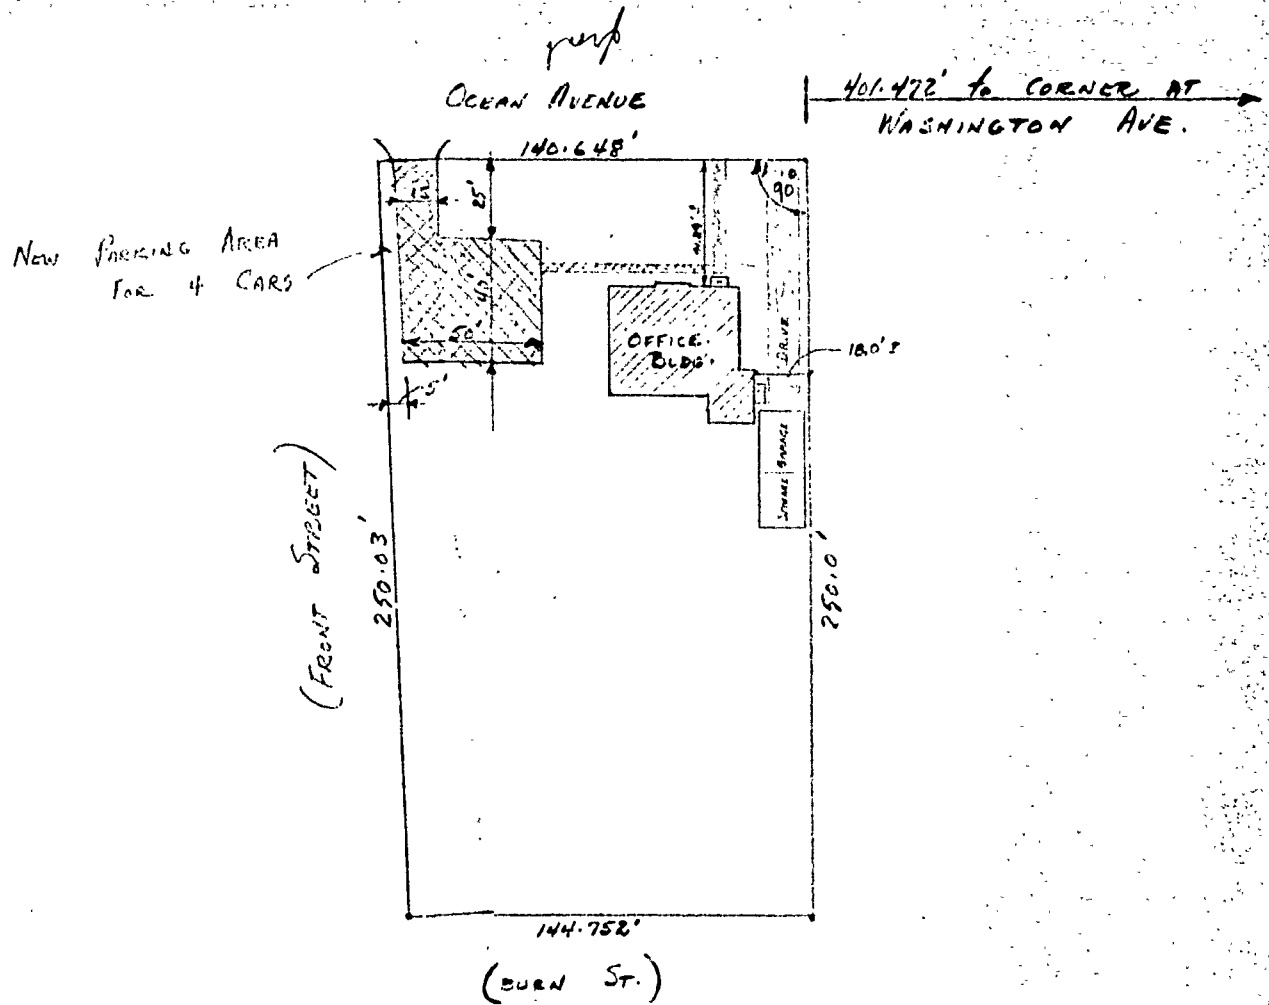 OCEAN AVENUE
401.472' to CORNER AT
WASHINGTON AVE.
140.648'
12'
25'
90
NEW PARKING AREA
FOR 4 CARS
40'
50'
OFFICE
BLDG.
DRIVE
18.0'±
5'
GARAGE
STORAGE
(FRONT STREET)
250.03'
250.0'
144.752'
(BURN ST.)